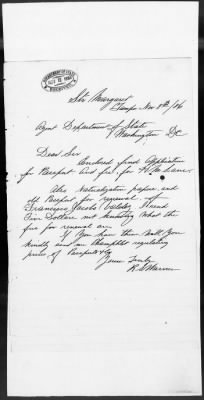 DEPARTMENT OF STATE
Str Margaret
Tampa Nov 8th/06
Agent Department of State
Washington DC
Dear Sir
Enclosed find Application
for Passport and fee for
Also Naturalization papers and
old Passport for renewal of
Francisco Jacobo I send
Five Dollars not knowing what the
fee for renewal are.
If you have them will you
kindly send me Pamphlet regulating
price of Passports &c
Yours Truly
R. S. Warner